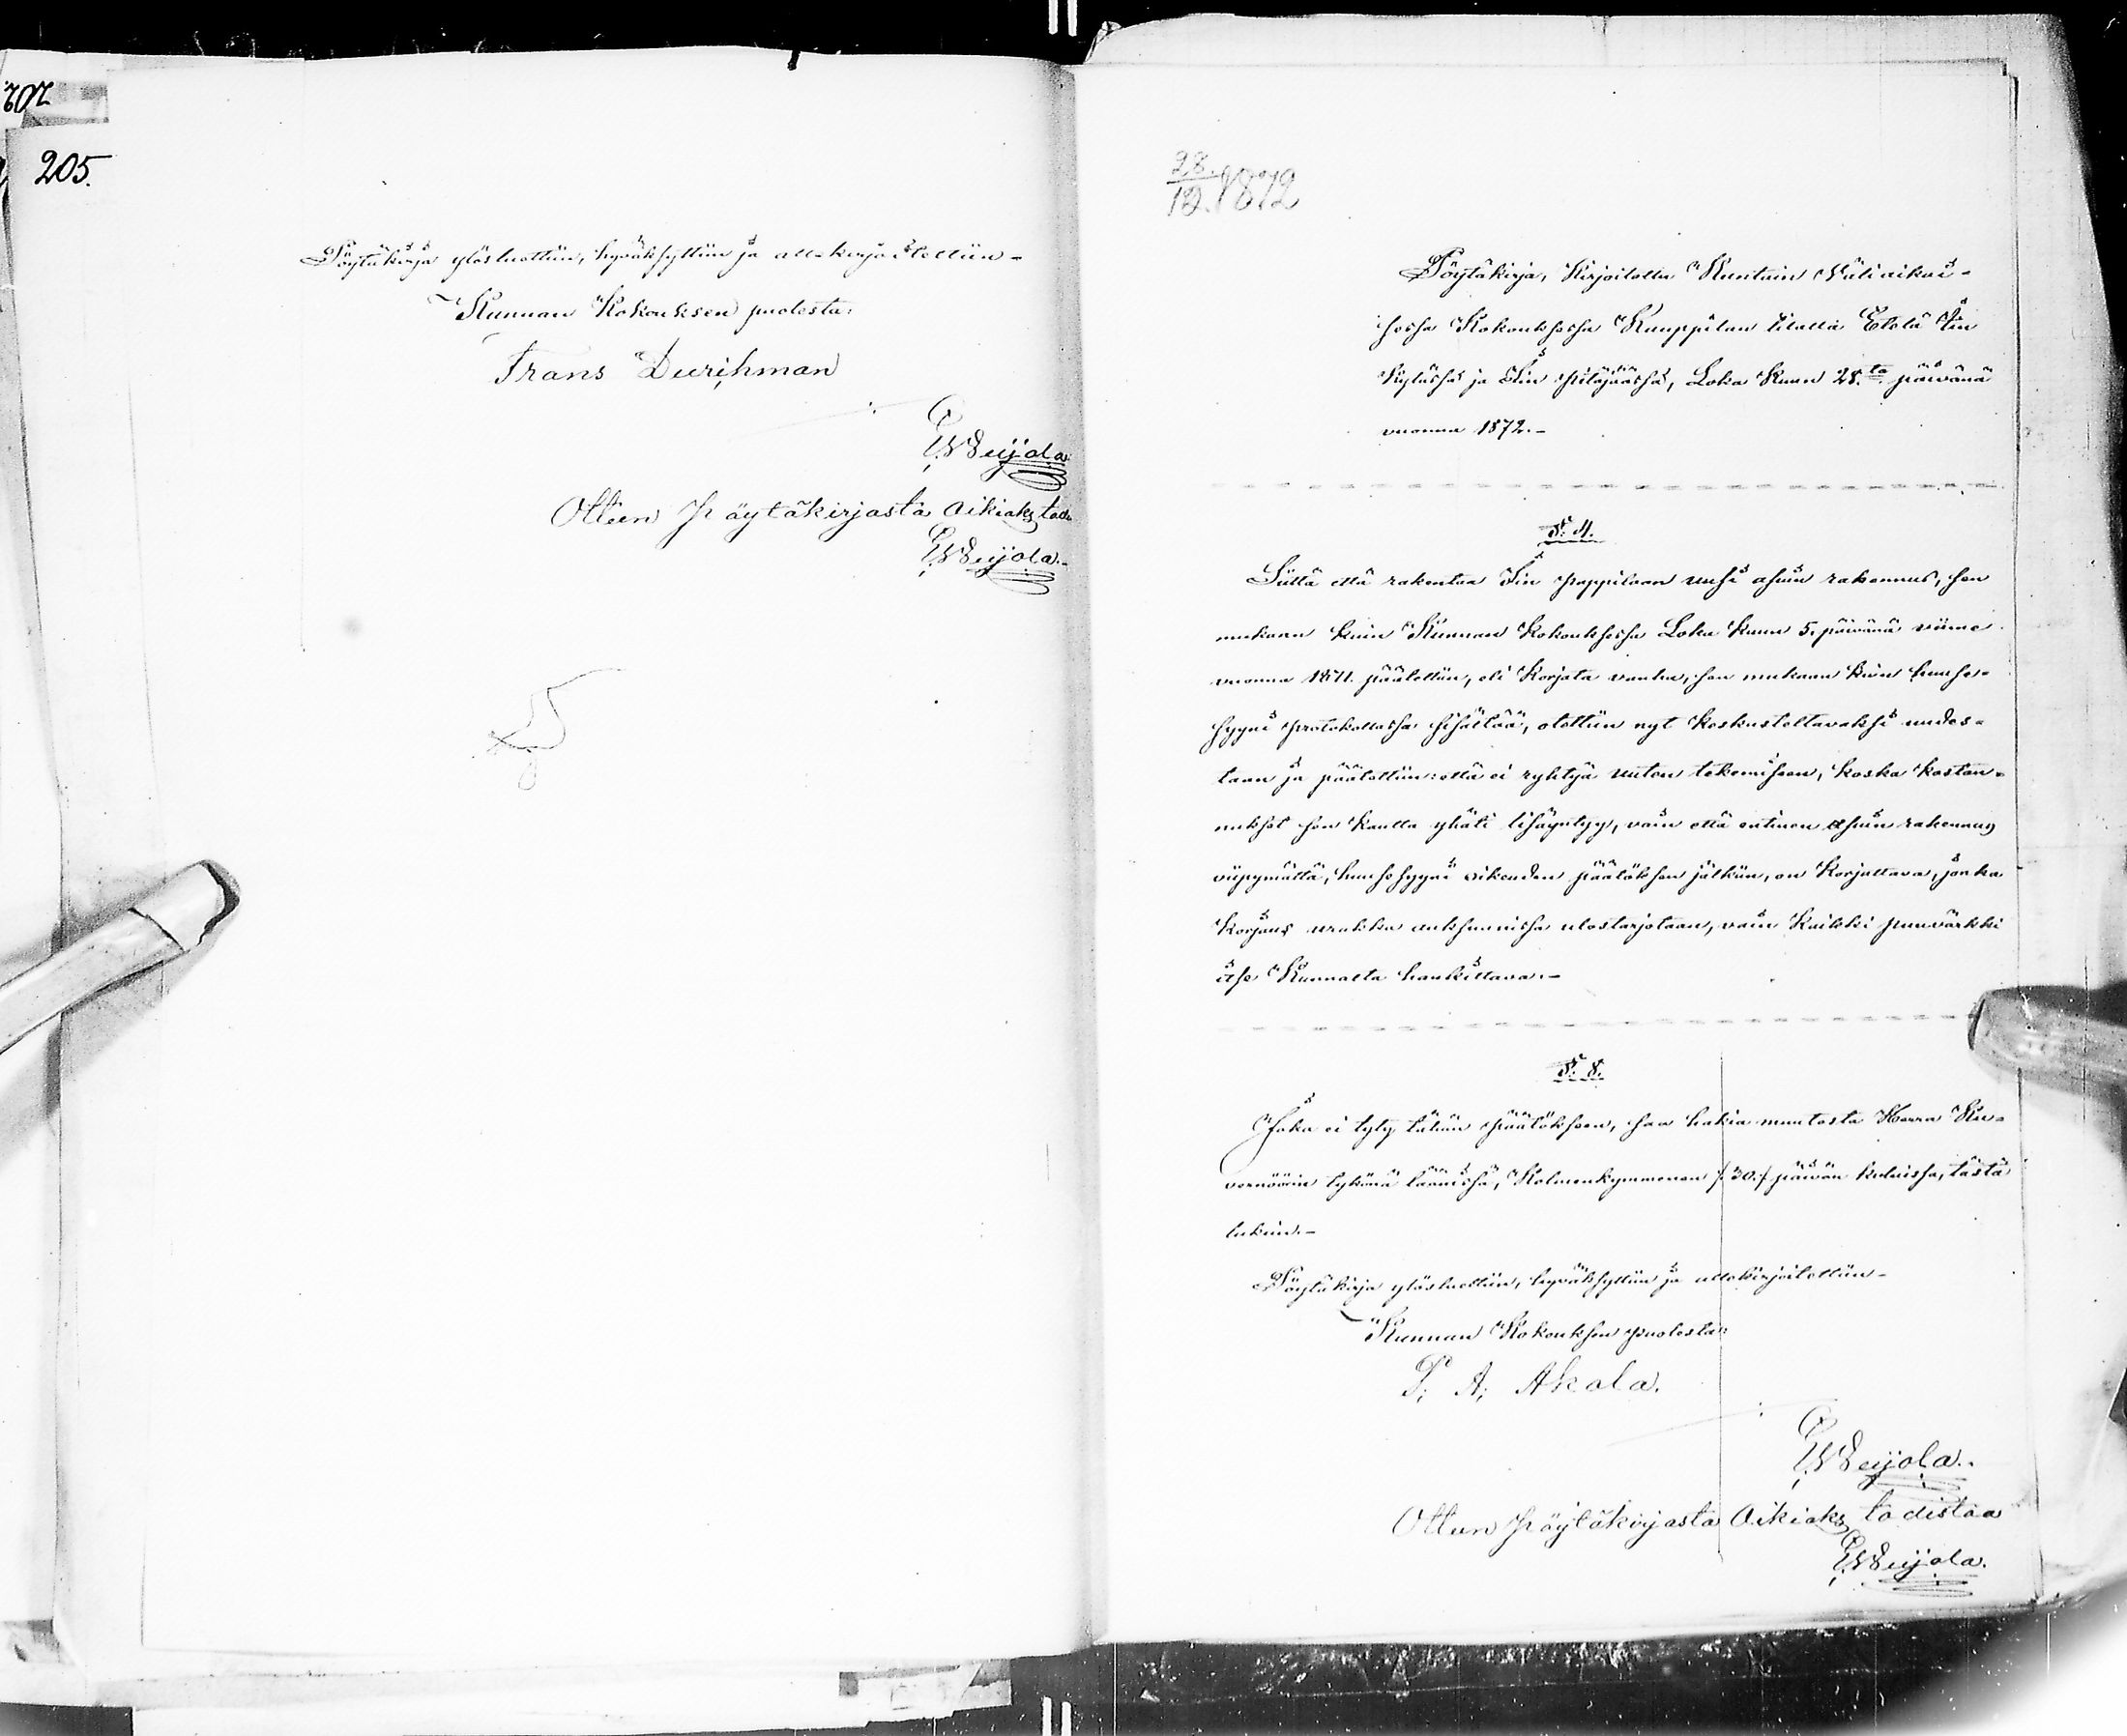 202
205.
Pöytäkirja ylösluettiin, hyväksyttiin ja allekirjoitettiin -
Kunnan Kokouksen puolesta:
Frans Durchman
E. W. Weijola
Otteen pöytäkirjasta oikiaks tod.
E. W. Weijola.
28./10. 1872
Pöytäkirja, Kirjoitettu Kuntain Väliaikai-
sessa Kokouksessa Kauppilan tilalla Etelä Iin
Kylässä ja Iin pitäjäässä, Loka Kuun 28.ta päivänä
vuonna 1872.-
§. 4.
Siittä että rakentaa Iin pappilaan uusi asuin rakennus, sen
mukaan kuin Kunnan Kokouksessa Loka kuun 5. päivänä viime
vuonna 1871. päätettiin, eli Korjata vanha, sen mukaan kuin huuse-
hyyni protokollassa sisältää, otettiin nyt keskusteltavaksi uudes-
taan ja päätettiin: että ei ryhtyä uuten tekemiseen, koska kostan-
nukset sen kautta yhäti lisäyntyy, vain että entinen asuin rakennus
viipymättä, huusehyyni oikeuden päätöksen jälkiin, on Korjattava, jonka
Korjaus urakka auksuunissa ulostarjotaan, vain Kaikki puuvärkki
itse Kunnalta hankittava.-
§. 8.
Joka ei tyty tähän päätökseen, saa hakia muutosta Herra Ku-
vernöörin tykönä läänissä, Kolmenkymmenen /:30:/ päivän kuluissa, tästä
lukiin.-
Pöytäkirja ylösluettiin, hyväksyttiin ja allekirjoitettiin -
Kunnan Kokouksen puolesta:
P. A. Akola.
E. W. Weijola.
Otteen pöytäkirjasta Oikiaks todistaa
E. W. Weijola.